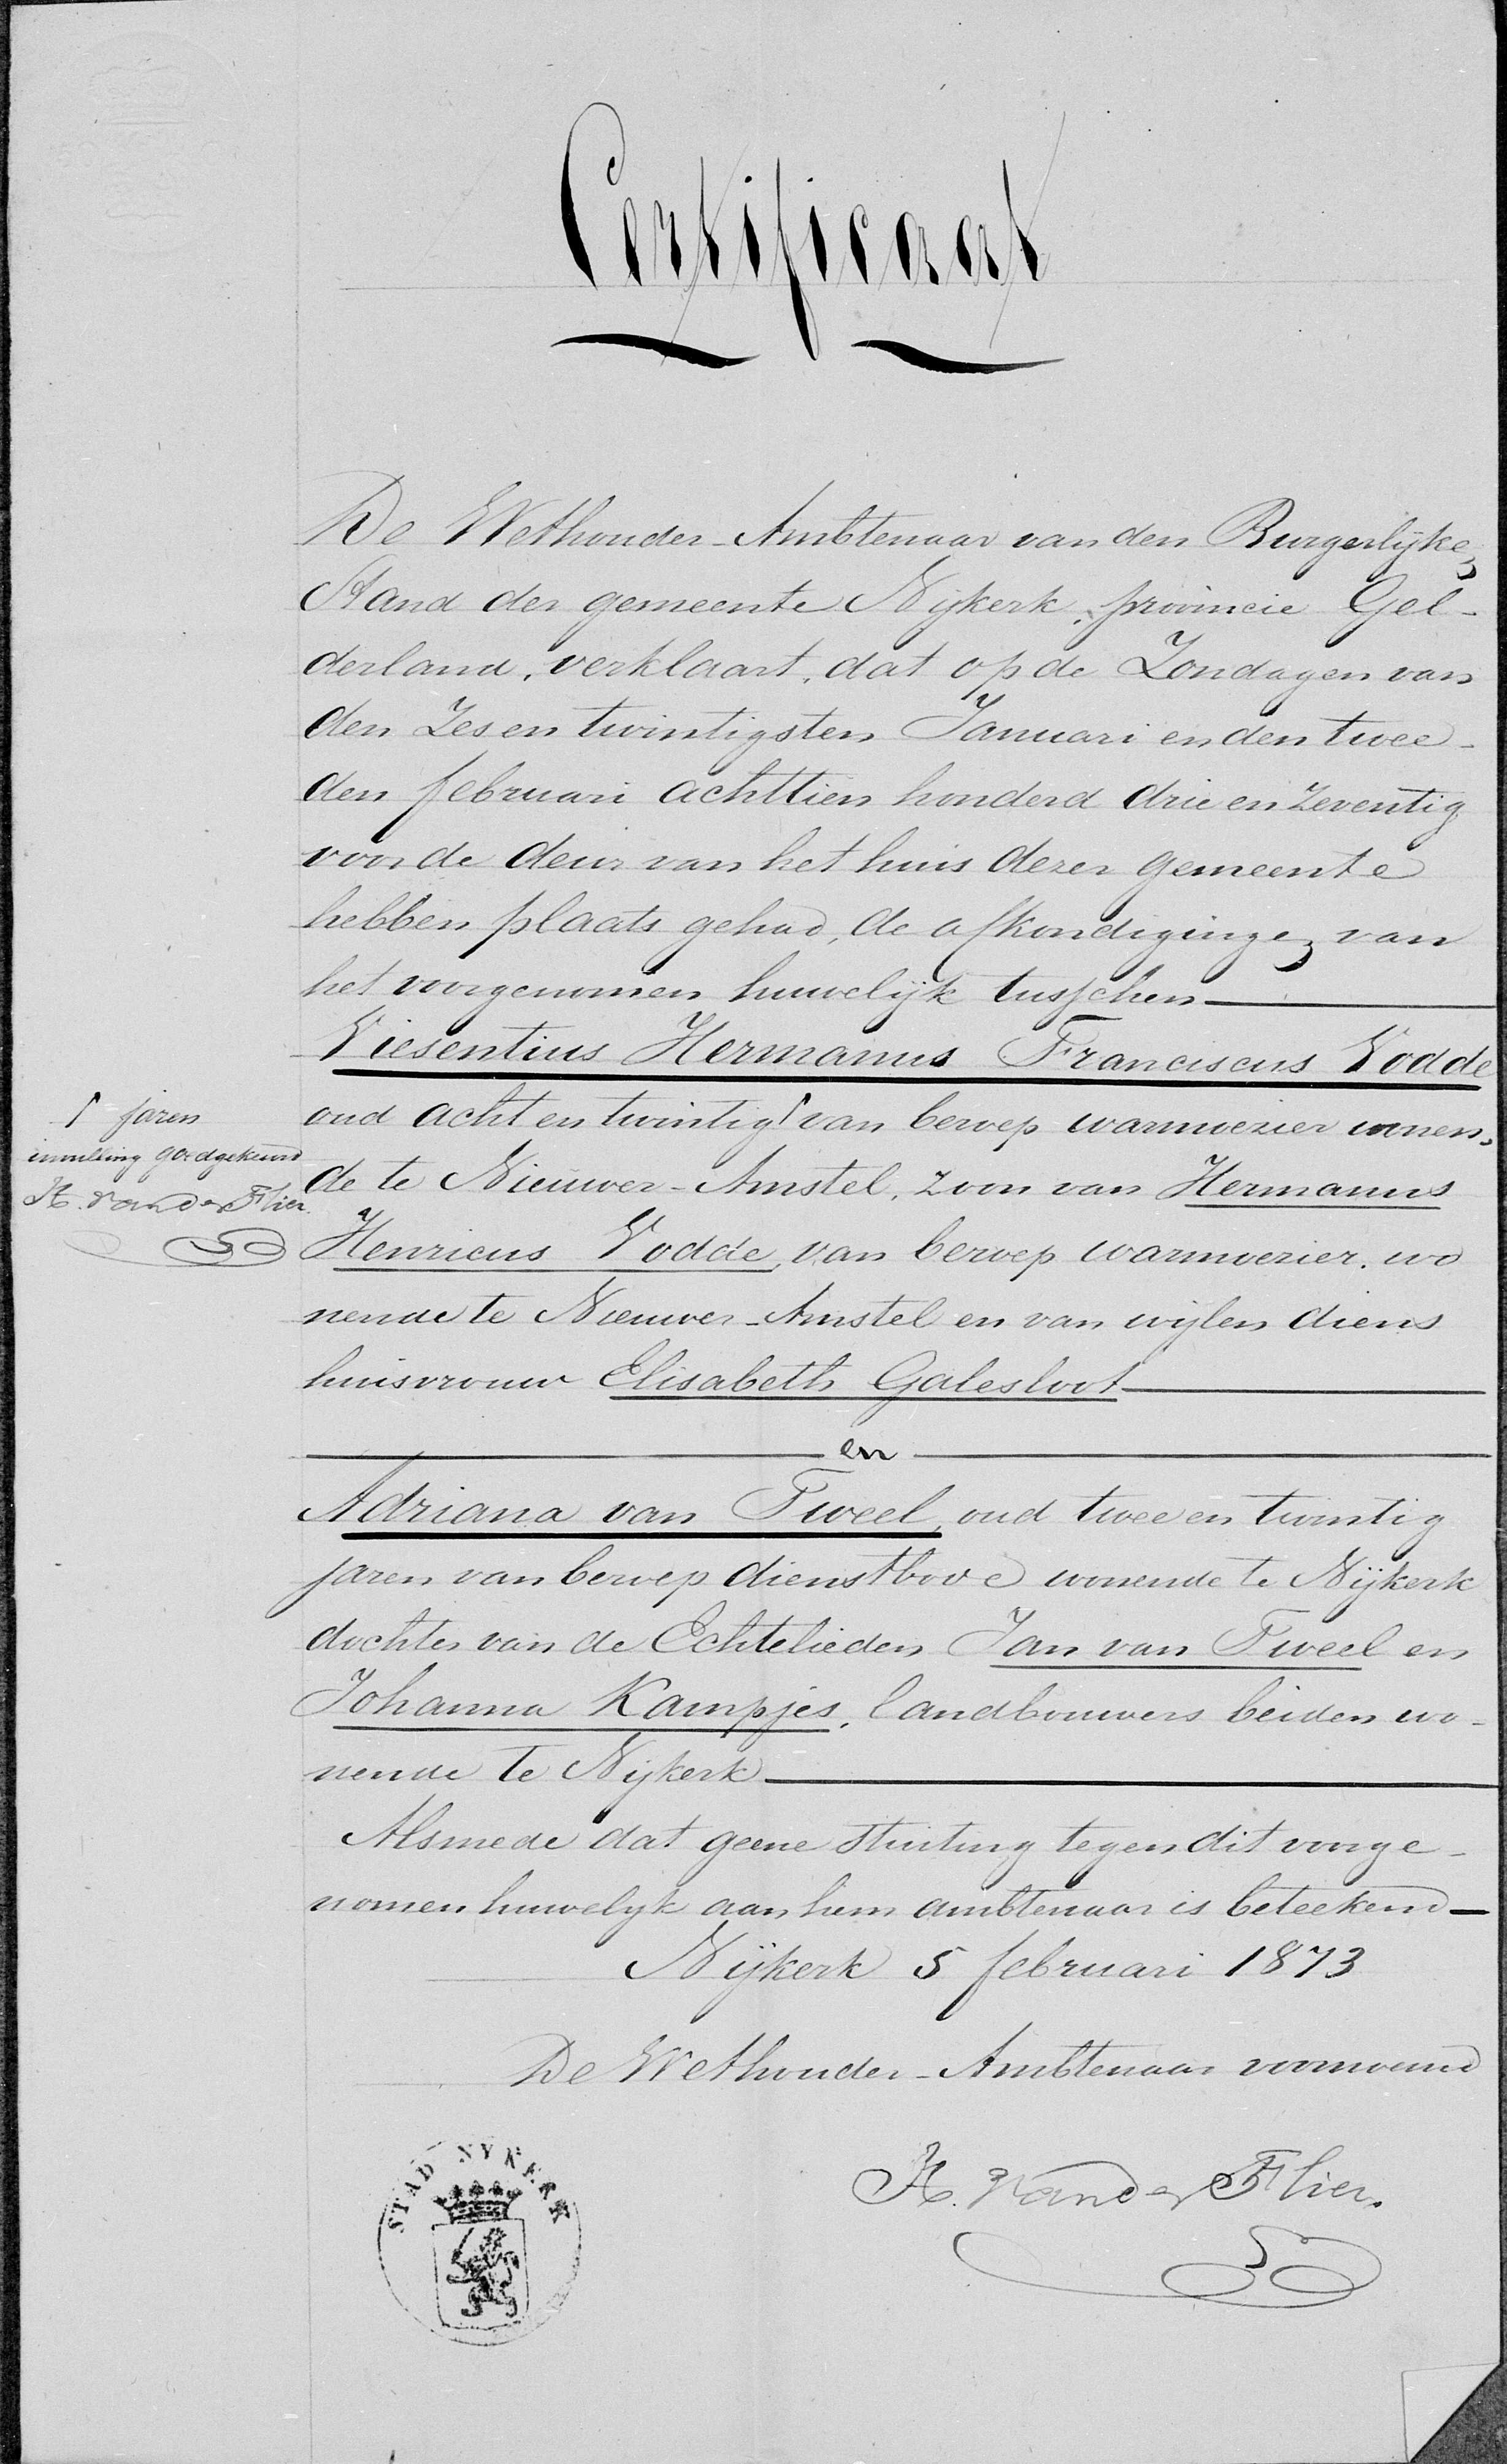 Certificaat
De Wethouder-Ambtenaar van den Burgerlijken
Stand der gemeente Nijkerk, provincie Gel-
derland, verklaart, dat op de Zondagen van
den Zes en twintigsten Januari en den twee-
den februari achttien honderd drie en zeventig
voor de deur van het huis dezer gemeente
hebben plaats gehad, de afkondigingen van
het voorgenomen huwelijk tusschen
Viesentius Hermanus Franciscus Vodde
oud acht en twintig ⌈ van beroep warmoezier wonen-
de te Nieuwer-Amstel, zoon van Hermanus
Henricus Vodde, van beroep warmoezier, wo
nende te Nieuwer-Amstel en van wijlen diens
huisvrouw Elisabeth Galesloot
en
Adriana van Tweel, oud twee en twintig
jaren van beroep dienstbode wonende te Nijkerk
dochter van de Echtelieden Jan van Tweel en
Johanna Kampjes, landbouwers beiden wo-
nende te Nijkerk
Alsmede dat geene stuiting tegen dit voorge-
nomen huwelijk aan hem ambtenaar is beteekend
Nijkerk 5 februari 1873
De Wethouder-Ambtenaar voornoemd
H. van der Flier.
⌈ jaren
invulling goedgekeurd
H. van der Flier.
STAD NYKERK